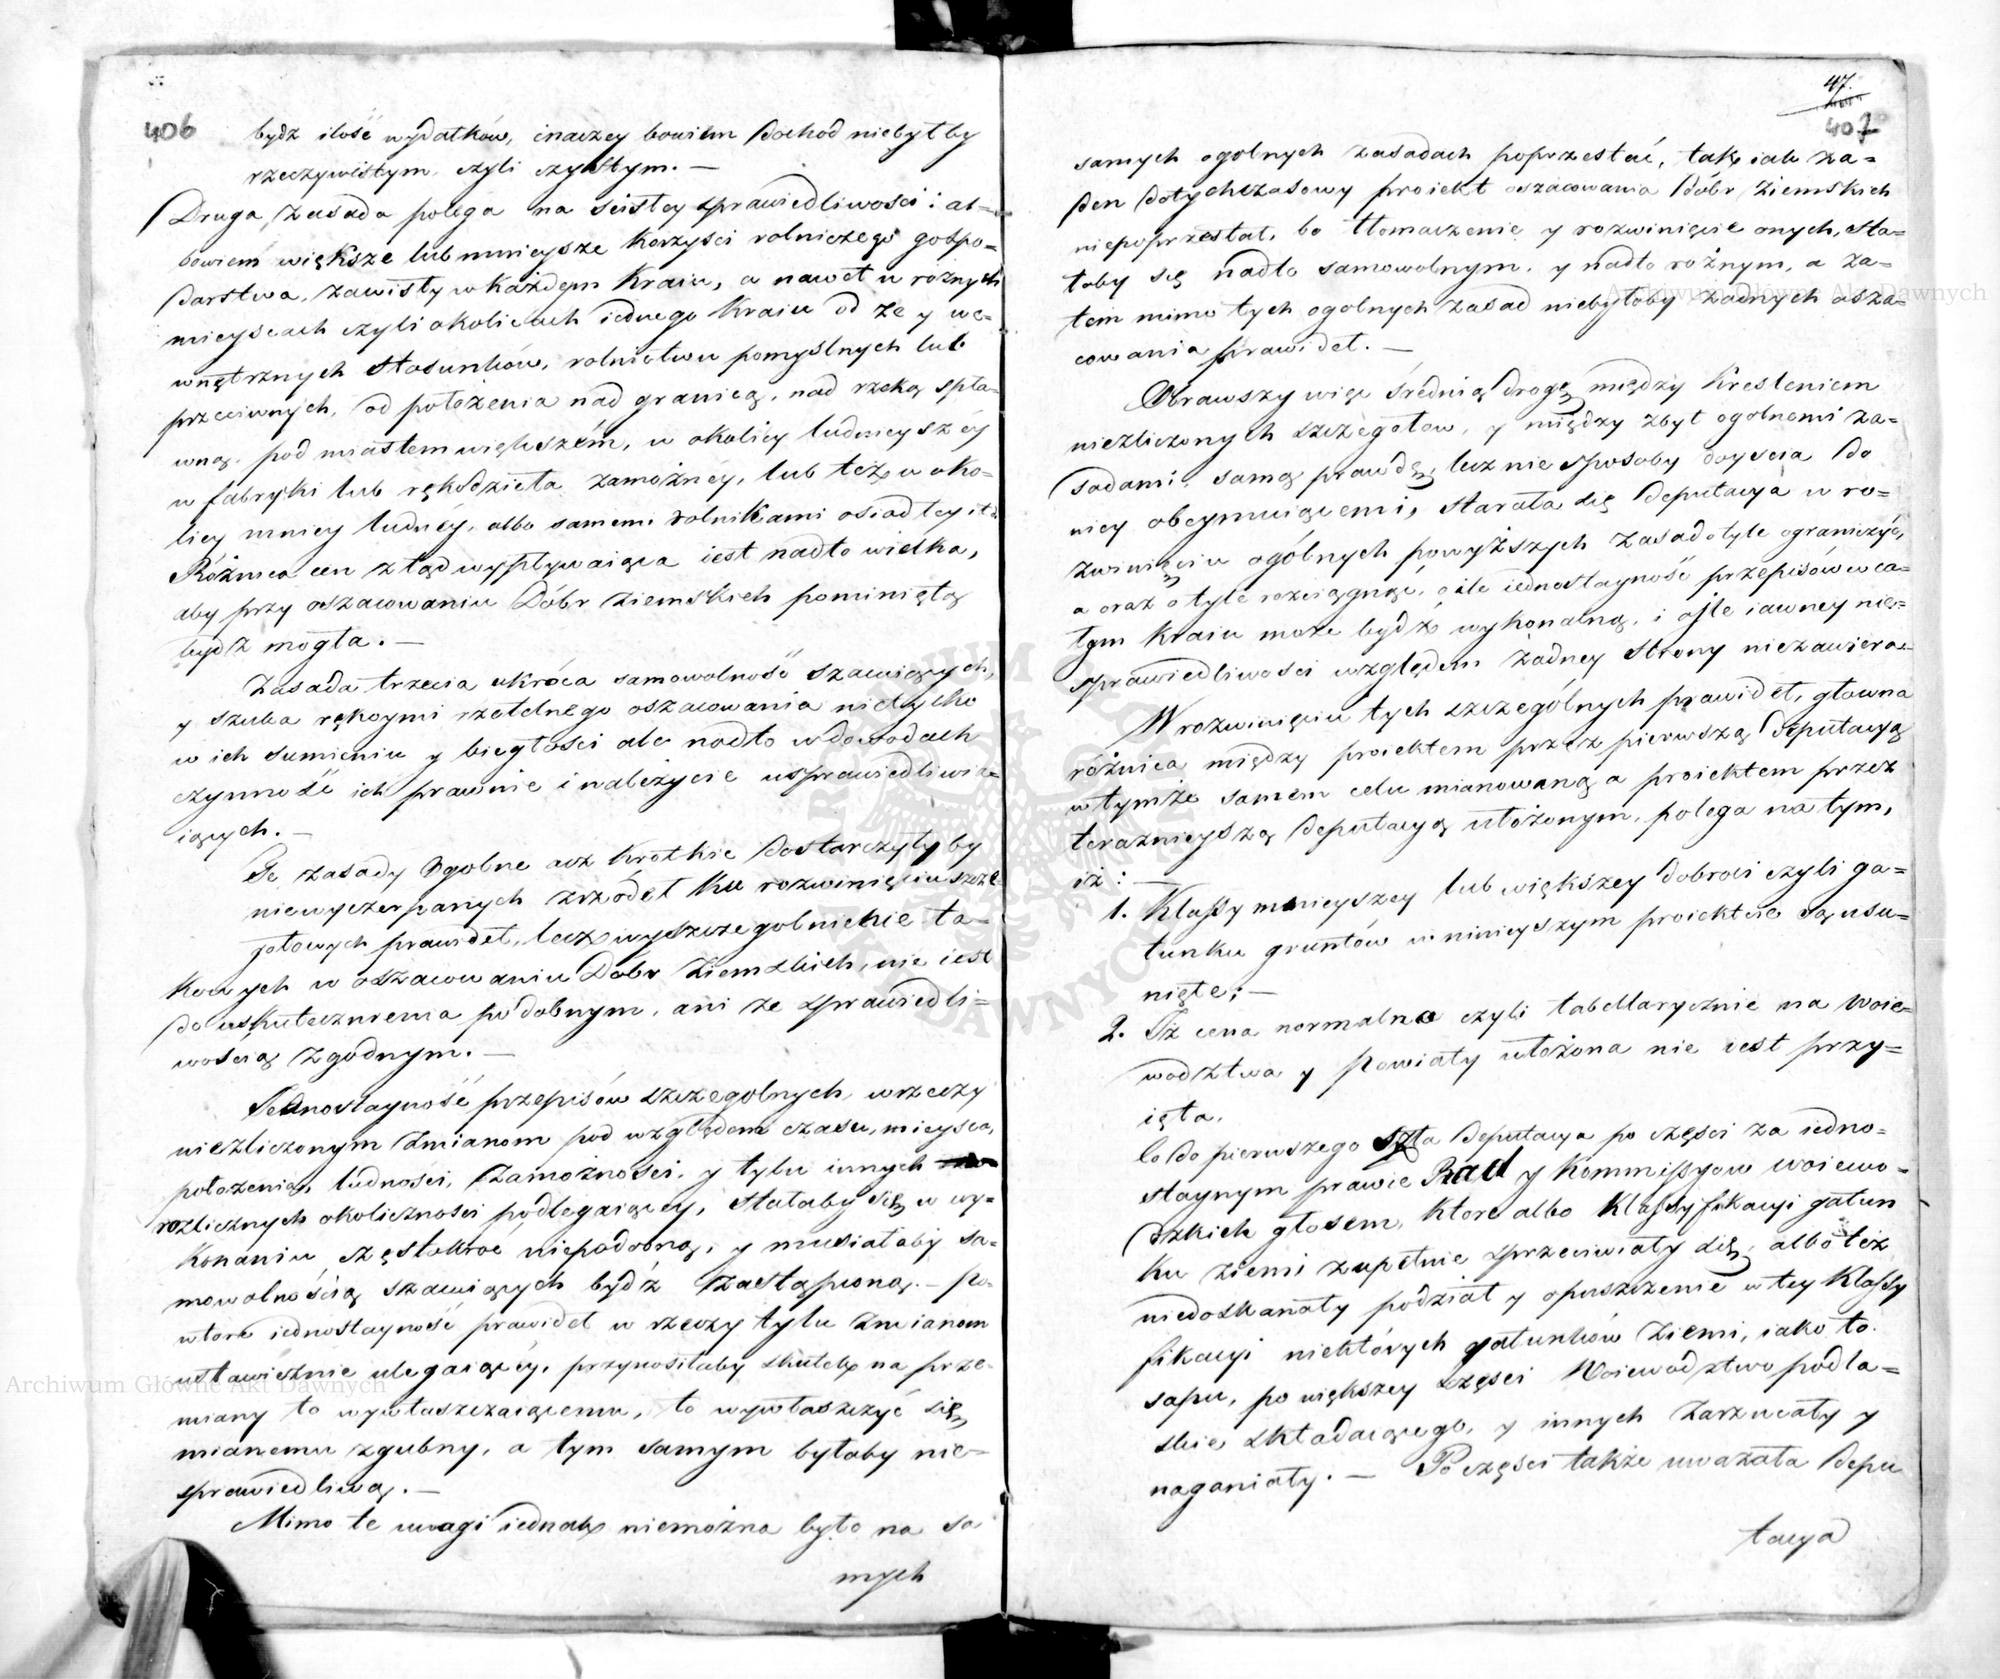 406
bydz ilość wydatków, inaczey bowiem Dochod niebyłby
rzeczywistym czyli czystym. —
Druga Zasada polega na scisłey sprawiedliwości: al=
bowiem większe lub mnieysze korzyści rolniczego gospo=
darstwa, zawisły w każdem Kraiu, a nawet w różnych
mieyscach czyli okolicach iednego Kraiu od ze y we=
wnętrznych stosunków, rolnictwu pomyślnych lub
przeciwnych, od położenia nad granicą, nad rzeką spła=
wną, pod miastem większém, w okolicy ludnieyszéy
w fabryki lub rękodzieła zamożney, lub też w oko=
licy mniey ludnéy, albo samemi rolnikami osiadłey itd.
Różnica cen ztąd wypływaiąca iest nadto wielka,
aby przy oszacowaniu Dóbr ziemskich pominiętą
bydz mogła. —
Zasada trzecia ukróca samowolność szacuiących,
y szuka rękoymi rzetelnego oszacowania nietylko
w ich sumieniu y biegłości ale nadto w dowodach
czynność ich prawnie i należycie usprawiedliwia=
iących. —
Te zasady Ogolne acz krótkie dostarczyłyby
niewyczerpanych zrzódeł ku rozwinięciu szcze=
gołowych prawideł, lecz wyszczegolnienie ta=
kowych w oszacowaniu Dóbr Ziemskich, nie iest
do uskutecznienia podobnym, ani ze sprawiedli=
wością zgodnym. —
Jednostayność przepisów szczegolnych, w rzeczy
niezliczonym zmianom pod względem czasu, mieysca,
położenia, ludności, zamożności, y tylu innych
rozlicznych okoliczności podlegaiącey, stałaby się w wy=
konaniu częstokroć niepodobną, y musiałaby sa=
mowolnością szacuiących bydź zastąpioną. — Po=
wtore iednostayność prawideł w rzeczy tylu zmianom
ustawicznie ulegaiącéy, przynosiłaby skutek na prze=
miany to wywłaszczaiącemu, to wywłaszczyć się
mianemu zgubny, a tym samym byłaby nie=
sprawiedliwą. —
Mimo te uwagi iednak niemożna było na sa
mych
47.
407
samych ogolnych zasadach poprzestać, tak iak ża=
den dotychczasowy proiekt oszacowania dóbr ziemskich
niepoprzestał, bo tłomaczenie y rozwinięcie onych, sta=
łoby się nadto samowolnym, y nadto rożnym, a za=
tem mimo tych ogolnych zasad niebyłoby żadnych osza=
cowania prawideł. —
Obrawszy więc średnią drogę między kresleniem
niezliczonych szczegołow, y między zbyt ogolnemi za=
sadami, samą prawdę, lecz nie sposoby doyscia do
niey obeymuiącemi, starała się Deputacya w ro=
zwinięciu ogólnych powyższych zasad otyle ograniczyć,
a oraz otyle rozciągnąć, oile iednostayność przepisów w ca=
łym kraiu może bydź wykonalną, i oile iawney nie=
sprawiedliwości względem żadney strony niezawiera.—
W rozwinięciu tych szczególnych prawideł, głowna
różnica między proiektem przez pierwszą Deputacyą
w tymże samem celu mianowaną a proiektem przez
teraźnieyszą Deputacyą ułożonym, polega na tym,
iż: —
1. Klassy mnieyszey lub większey dobroci czyli ga=
tunku gruntów w ninieyszym proiekcie są usu=
nięte; —
2. Iż cena normalna czyli tabellarycznie na Woie=
wodztwa y Powiaty ułożona nie iest przy=
ięta.
Co do pierwszego szła Deputacya po części za iedno=
staynym prawie Rad y Kommissyow Woiewo=
dzkich głosem, które albo Klassyfikacyi gatun
ku ziemi zupełnie sprzeciwiały się, albo też
niedoskonały podział y opuszczenie w tey Klassy
fikacyi niektórych gatunków ziemi, iako to
sapu, po większey części Woiewodztwo podla=
skie składaiącego, y innych zarzucały y
naganiały. — Po części także uważała Depu
tacya
Archiwum Główne Akt Dawnych
Archiwum Główne Akt Dawnych